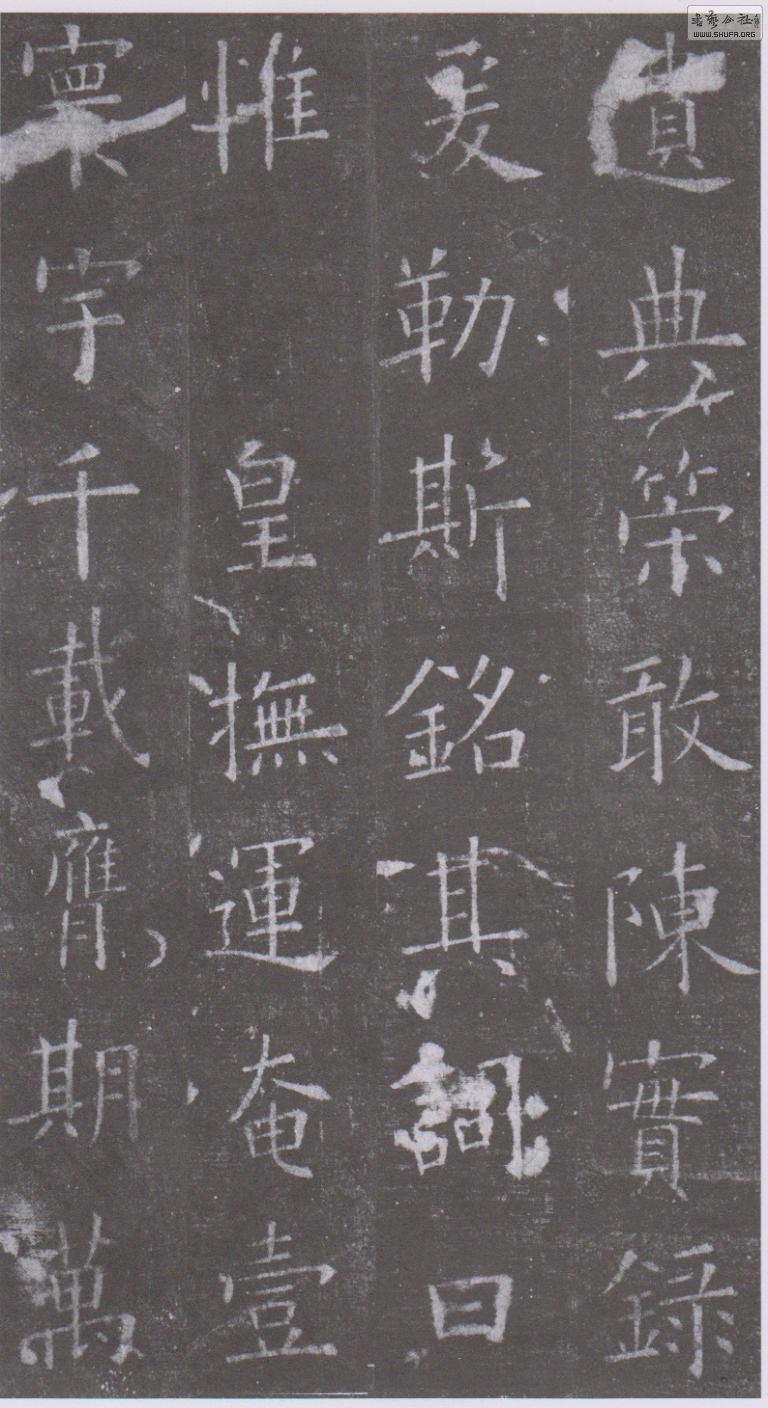 遺典策敢陳實録
爰勒斯銘其詞曰
惟 皇撫運奄壹
寰宇千載膺期萬
书艺公社
WWW.SHUFA.ORG